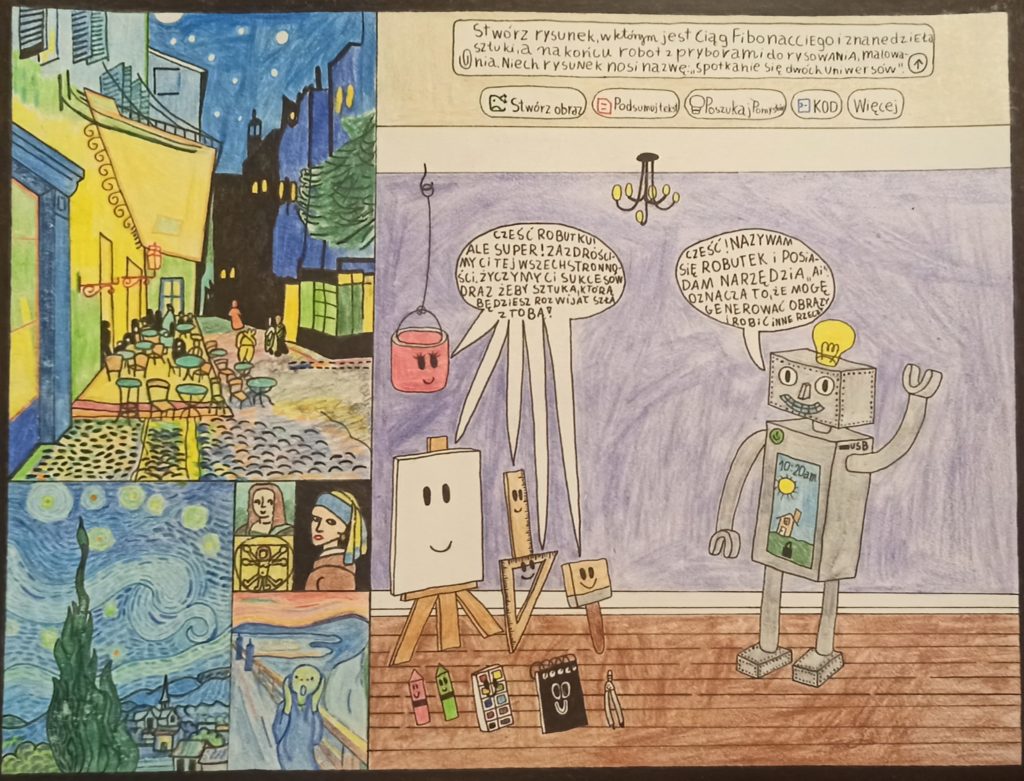 Stwórz rysunek, w którym jest Ciąg Fibonacciego i znane dzieła
sztuki, a na końcu robot z pryborami do rysowania, malowa-
nia. Niech rysunek nosi nazwę: „spotkanie się dwóch uniwersów".
Stwórz obraz
Podsumuj tekst
Poszukaj Pomysłów
KOD
Więcej
CZEŚĆ ROBUTKU!
ALE SUPER! ZAZDROŚCI-
MY CI TEJ WSZECHSTRONNO-
ŚCI, ŻYCZYMY CI SUKCESÓW
ORAZ ŻEBY SZTUKA, KTÓRĄ
BĘDZIESZ ROZWIJAŁ SZŁA
Z TOBĄ!
CZEŚĆ! NAZYWAM
SIĘ ROBUTEK i POSIA-
DAM NARZĘDZIA „Ai"
OZNACZA TO, ŻE MOGĘ
GENEROWAĆ OBRAZY
I ROBIĆ INNE RZECZY
USB
10:20am